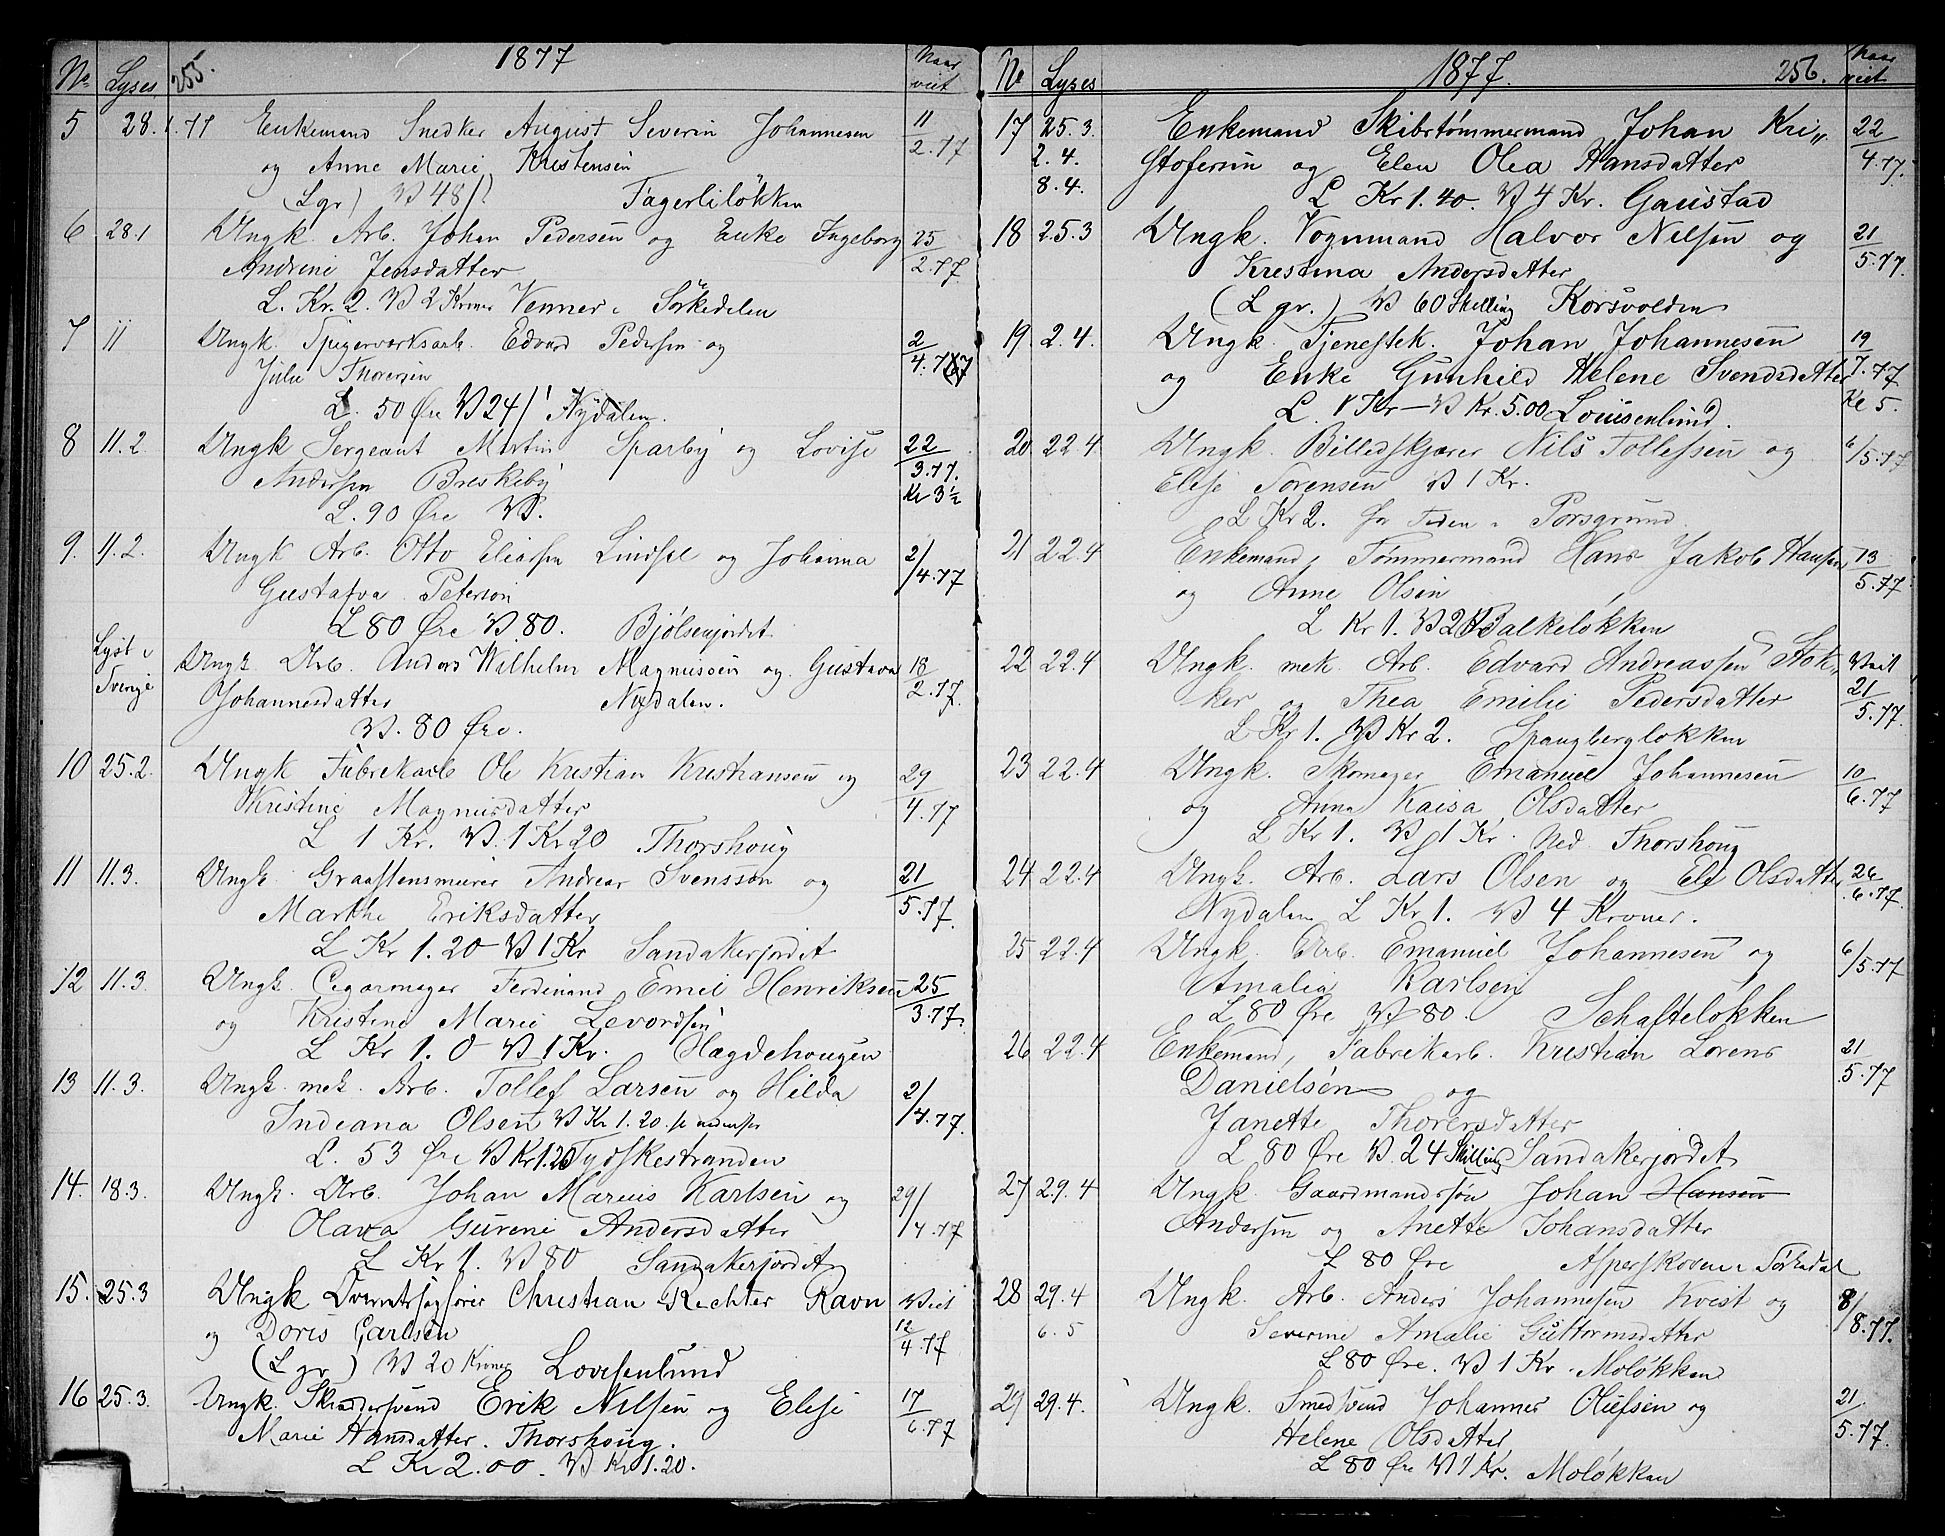 No Lyses 255. 1877 Naar viet
5 28.1.77 Enkemand Snedker August Severin Johannesen 11/2.77
og Anne Marie Kristensen
(L gr) V 48 Fagerliløkken
6 28.1 Ungk. Arb. Johan Pedersen og Enke Ingeborg 25/2.77
Andrine Jensdatter
L. Kr. 2. V 2 Kroner Venner i Sørkedalen
7 11 Ungk. Spigerværksarb. Edvard Pedersen og 2/4.77
Julie Thoresen
L. 50 Øre V 24 Nydalen.
8 11.2. Ungk Sergeant Martin Sparby og Lovise 22/3.77.
Andersen Breskeby Kl 3½
L. 90 Øre V.
9. 11.2. Ungk Arb. Otto Eliasen Lindsel og Johanna 2/4.77
Gustafva Peterson
L 80 Øre V. 80. Bjølsenjordet
Lyst i Sverige Ungk. Arb. Anders Wilhelm Magnussen og Gustava 18/2.77.
Johannesdatter Nydalen.
V. 80 Øre.
10 25.2. Ungk Fabrikarb Ole Kristian Kristiansen og 29/4.77
Kristine Magnusdatter
L 1 Kr. V. 1 Kr 20 Thorshoug
11 11.3. Ungk. Graastensmurer Andreas Svensson og 21/5.77.
Marthe Eriksdatter
L Kr 1.20 V 1 Kr Sandakerjordet
12 11.3. Ungk. Cigarmager Ferdinand Emil Henriksen 25/3.77.
og Kristine Marie Levordsen
L Kr 1.0 V 1 Kr. Hægdehougen
13 11.3. Ungk. mek. Arb. Tollef Larsen og Hilda 2/4.77.
Indeana Olsen V Kr 1.20 se nedenfor
L. 53 Øre V Kr 1.20 Tydskestranden
14. 18.3. Ungk. Arb. Johan Marius Karlsen og 29/4.77
Olava Gurine Andersdatter
L Kr 1. V 80 Sandakerjordet
15. 25.3 Ungk Overretssagfører Christian Richter Ravn Viet
og Doris Carlsen 12/4.77
(L gr) V 20 Kroner Lovisenlund
16 25.3. Ungk. Skræddersvend Erik Nilsen og Elise 17/6.77
Marie Hansdatter. Thorshoug.
L Kr 2.00. V Kr 1.20.
No Lyses 1877. 256. Naar viet
17 25.3. Enkemand Skibstømmermand Johan Kri„ 22/4.77.
2.4. stofersen og Elen Olea Hansdatter
8.4. L Kr 1.40. V 4 Kr. Gaustad
18 25.3 Ungk. Vognmand Halvor Nilsen og 21/5.77.
Kristina Andersdatter
(L gr.) V 60 Skilling Korsvolden
19. 2.4. Ungk. Tjenestek. Johan Johannesen 19/7.77
og Enke Gunhild Helene Svendsdatter Kl 5.
L. 1 Kr V Kr. 5.00 Louisenlund.
20 22.4 Ungk. Billedskjærer Nils Tollefsen og 6/5.77
Elise Sorensen V 1 Kr.
L Kr 2. for Tiden i Porsgrund.
21 22.4 Enkemand, Tømmermand Hans Jakob Hansen 13/5.77.
og Anne Olsen
L Kr 1. V 2 Kr Balkeløkken
22 22.4 Ungk. mek. Arb. Edvard Andreassen Stok„ Viet
ker og Thea Emilie Pedersdatter 21/5.77.
L Kr 1. V Kr 2. Spangbergløkken
23 22.4 Ungk. Skomager Emanuel Johannesen 10/6.77
og Anna Kaisa Olsdatter
L Kr 1. V 1 Kr. Ned. Thorshoug
24 22.4 Ungk. Arb. Lars Olsen og Eli Olsdatter 26/6.77.
Nydalen L Kr 1. V 4 Kroner.
25 22.4 Ungk. Arb. Emanuel Johannesen og 6/5.77
Amalia Karlsen
L 80 Øre V 80. Schafteløkken
26 22.4 Enkemand, Fabrikarb. Kristian Lorens 21/5.77
Danielsen og
Janette Thorersdatter
L 80 Øre V. 24 Skilling Sandakerjordet
27 29.4 Ungk. Gaardmandssøn Johan Hansen
Andersen og Anette Johansdatter
L 80 Øre Asperskoven i Sørkedal
28 29.4 Ungk. Arb. Anders Johannesen Kvist og 8/8.77.
6.5 Severine Amalie Guttormsdatter
L 80 Øre. V 1 Kr. Moløkken
29 29.4. Ungk. Smedsvend Johannes Olufsen og 21/5.77.
Helene Olsdatter
L 80 Øre V 1 Kr. Moløkken